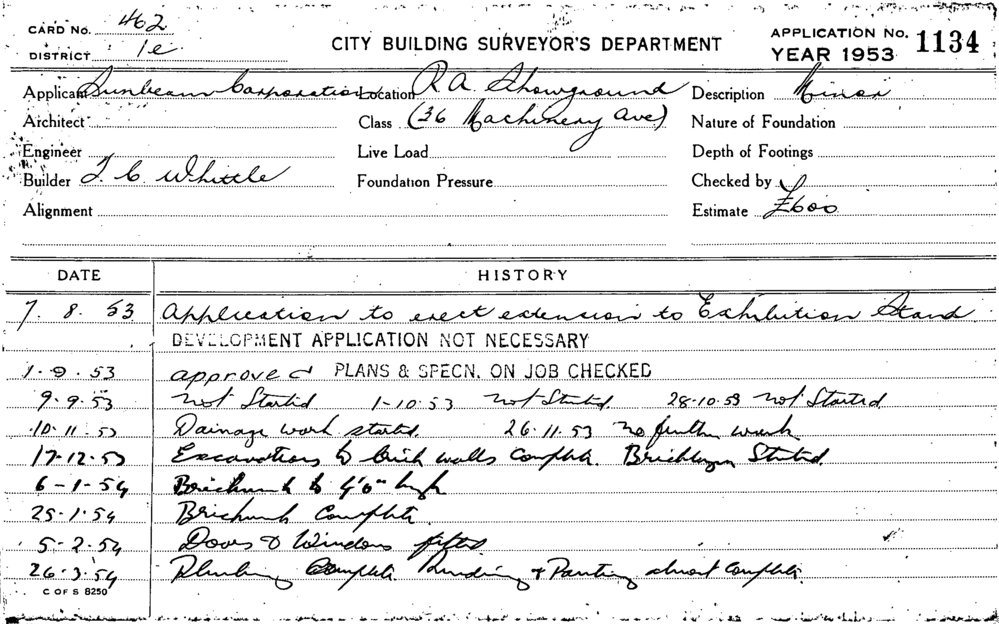 CARD No. 462
DISTRICT 1e
CITY BUILDING SURVEYOR'S DEPARTMENT
APPLICATION No. 1134
YEAR 1953
Applicant Sunbeam Corporation Location R.A. Showground Description Minor
Architect Class (36 Machinery Ave) Nature of Foundation
Engineer Live Load Depth of Footings
Builder T. C. Whittle Foundation Pressure Checked by
Alignment Estimate £600
DATE HISTORY
7. 8. 53 Application to erect extension to Exhibition Stand
DEVELOPMENT APPLICATION NOT NECESSARY
1-9.53 approved PLANS & SPECN. ON JOB CHECKED
9.9.53 Not Started 1-10.53 Not Started. 28-10.53 Not Started
10.11.53 Dainage work started. 26.11.53 No further work
17-12-53 Excavations to brick walls Complete. Started.
6-1-54 Brickwork to 4'0" high
25-1-54 Brickwork Complete.
5-2.54 Doors & Windows fitted
26.3.54 Plumbing Complete. & Painting almost Complete.
C OF S 8250